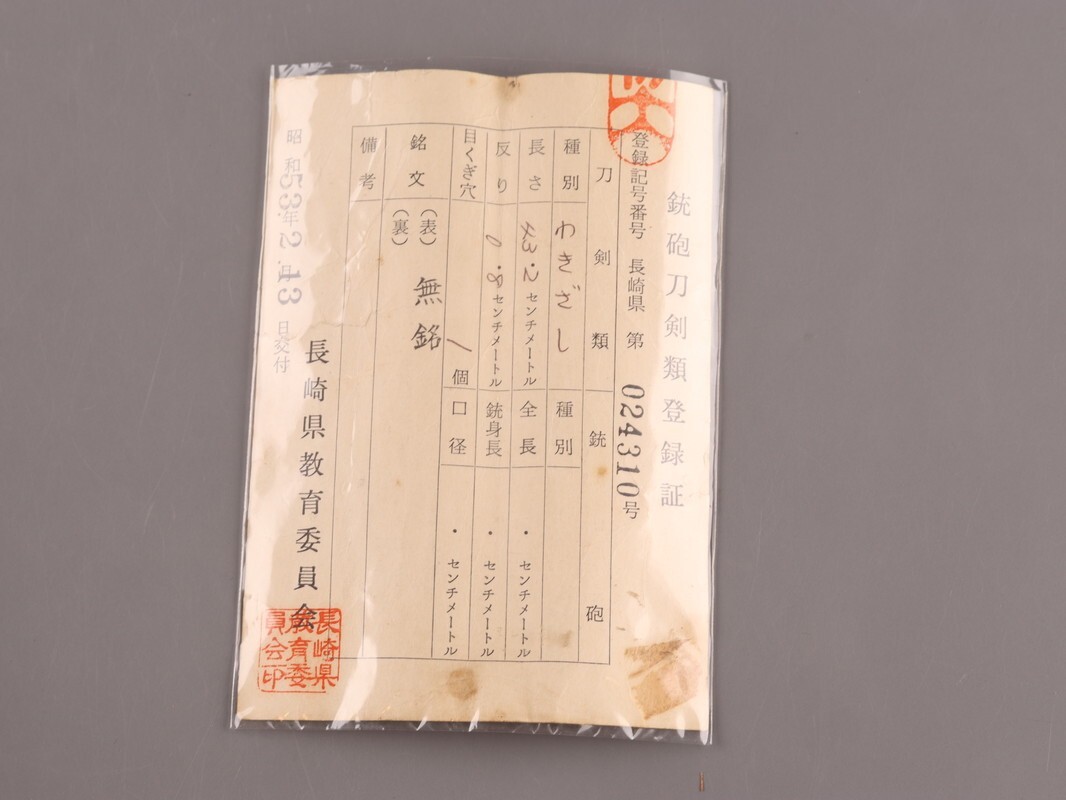 銃砲刀剣類登録証
登録記号番号 長崎県 第 024310号
刀剣類
種別 わきざし
長さ 43.2センチメートル
反り 0.8センチメートル
目くぎ穴 1個
銃砲
種別
全長 ・ センチメートル
銃身長 ・ センチメートル
口径 ・ センチメートル
銘文 (表) 無銘
(裏)
備考
昭和53年2月13日交付
長崎県教育委員会
長崎県
教育委
員会印